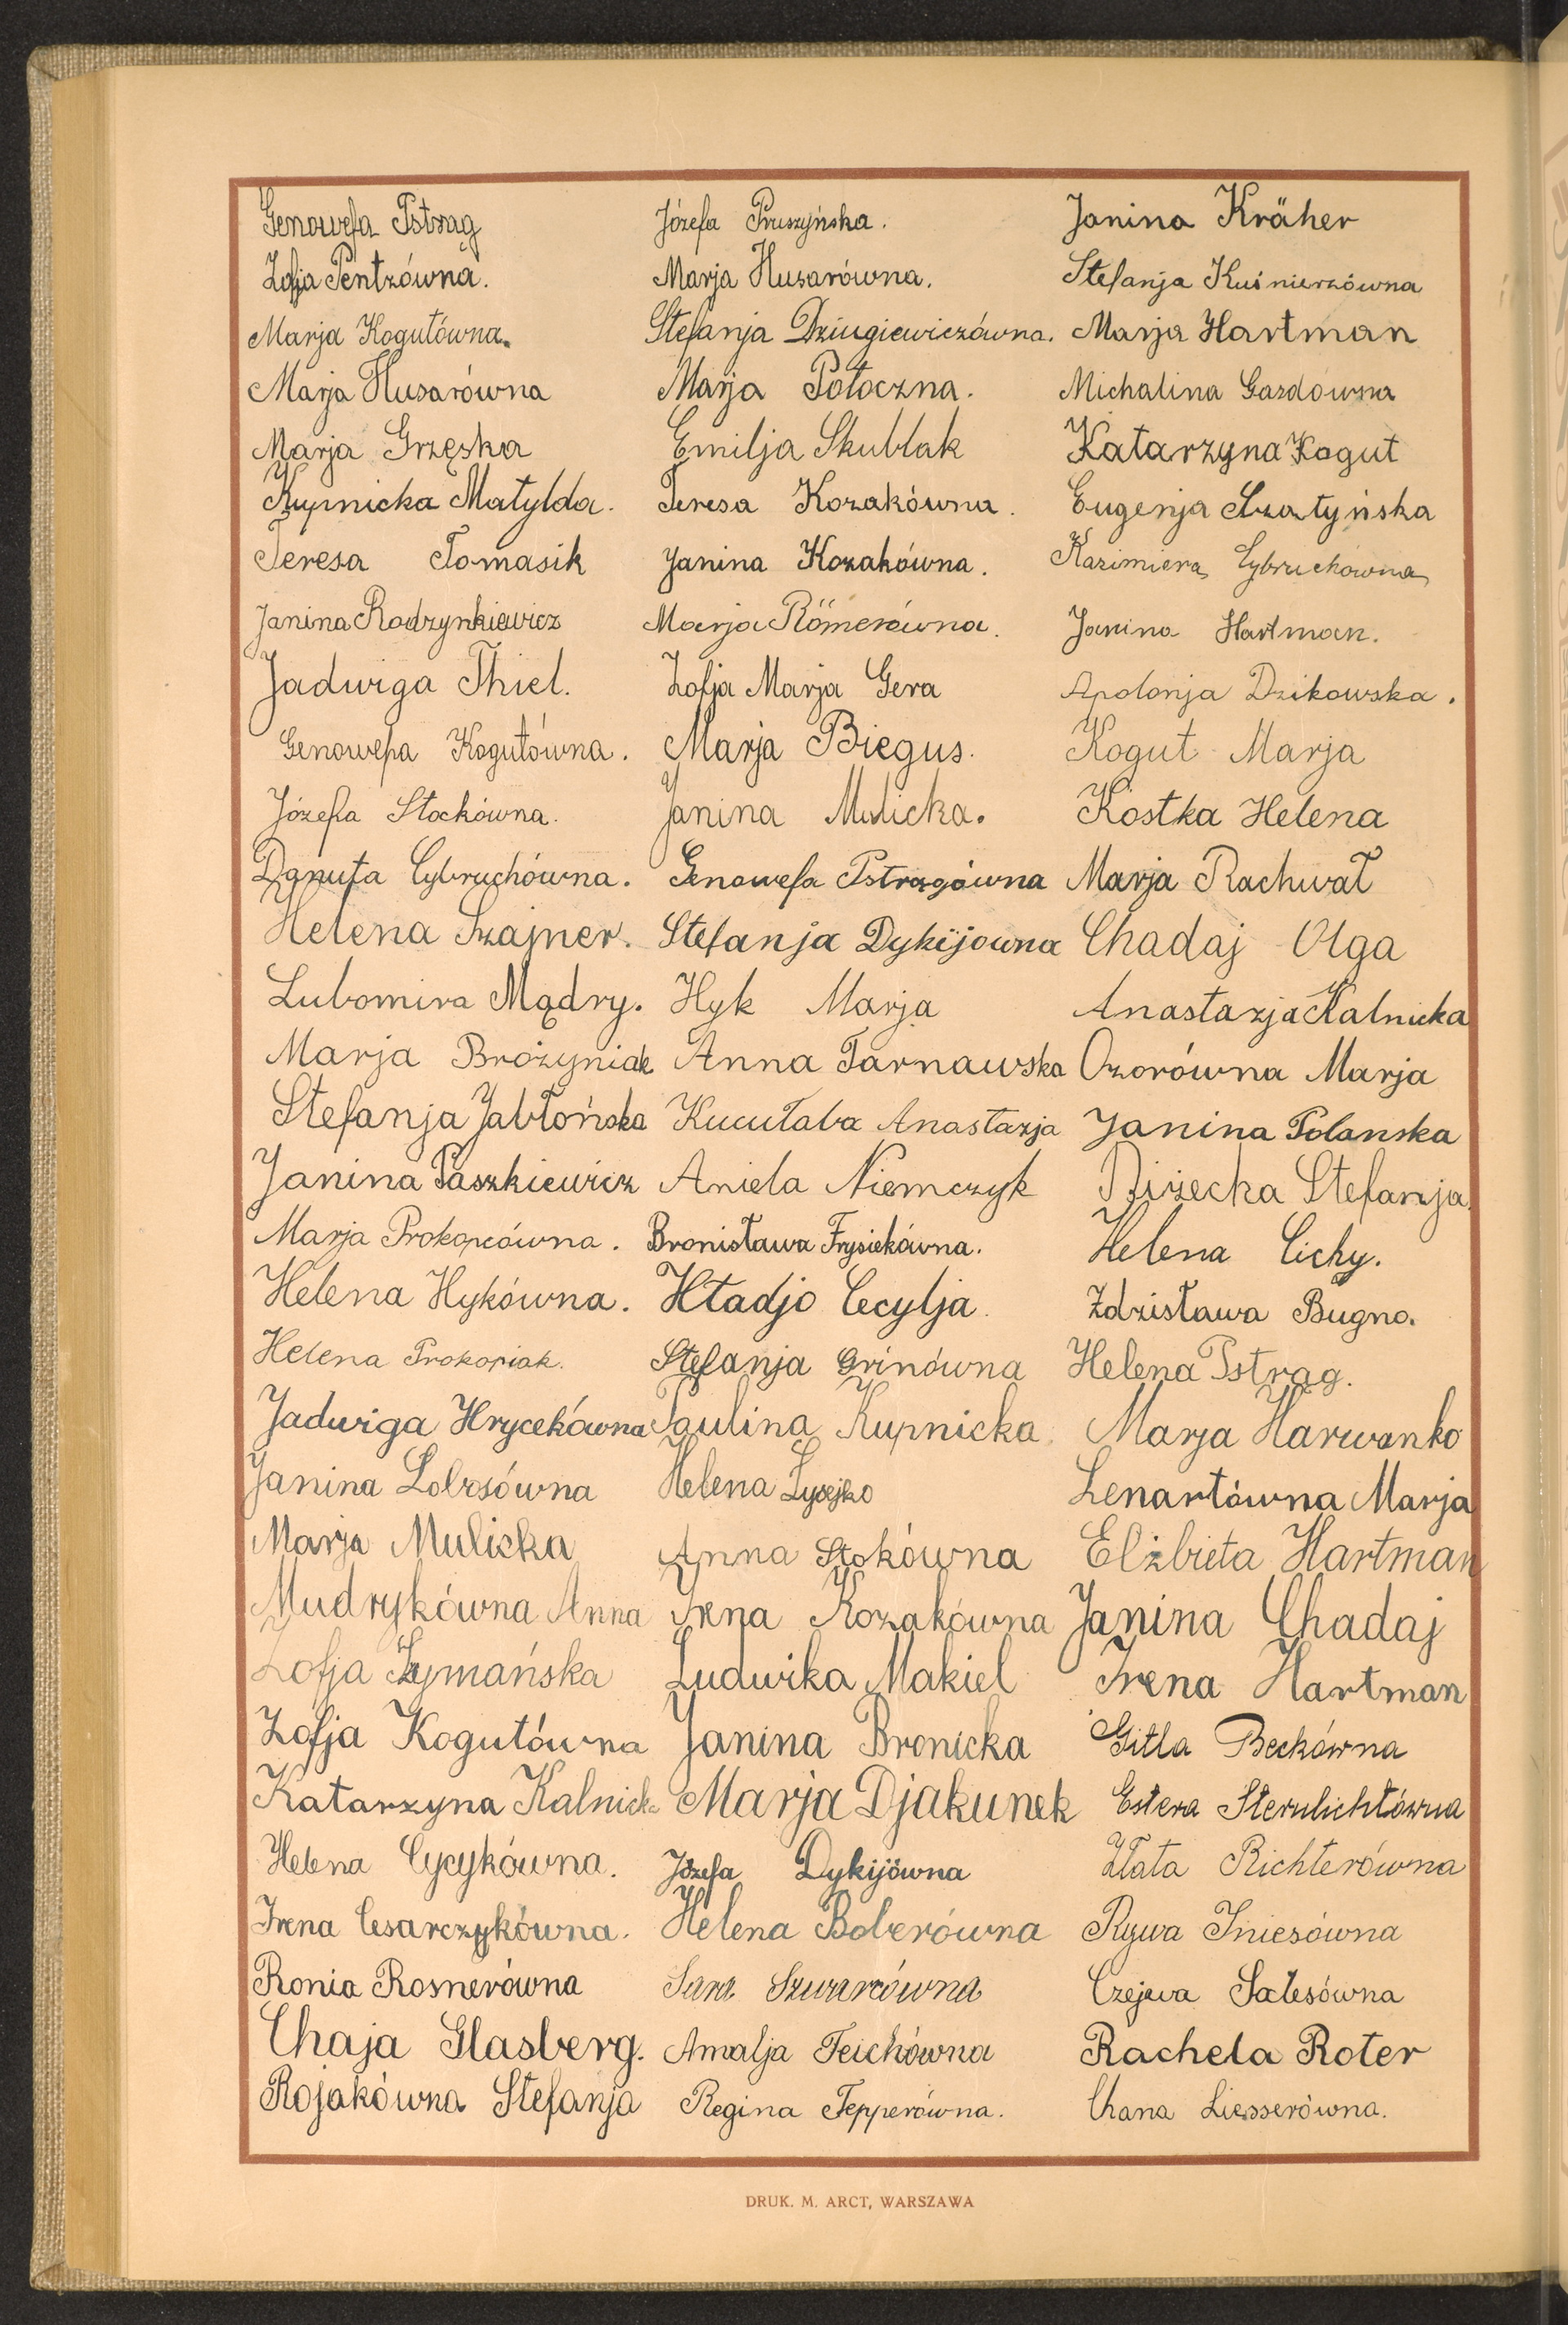 Genowefa Pstrąg
Zofja Pentzówna.
Marja Kogutówna.
Marja Husarówna
Marja Grzęska
Kupnicka Matylda.
Teresa Tomasik
Janina Radzynkiewicz
Jadwiga Thiel.
Genowefa Kogutówna.
Józefa Stockówna.
Danuta Cybruchówna.
Helena Szajner.
Lubomira Mądry.
Marja Brożyniak
Stefanja Jabłońska
Janina Paszkiewicz
Marja Prokopcówna.
Helena Hykówna.
Helena Prokopiak.
Jadwiga Hrycekówna
Janina Lobosówna
Marja Mulicka
Mudrykówna Anna
Zofja Szymańska
Zofja Kogutówna
Katarzyna Kalnicka
Helena Cycykówna.
Irena Cesarczykówna.
Ronia Rosnerówna
Chaja Glasberg.
Rojakówna Stefanja
Józefa Pruszyńska.
Marja Husarówna.
Stefanja Dziugiewiczówna.
Marja Potoczna.
Emilja Skublak
Teresa Kozakówna.
Janina Kozakówna.
Marja Römerówna.
Zofja Marja Gera
Marja Biegus.
Janina Mulicka.
Genowefa Pstrągówna
Stefanja Dykijowna
Hyk Marja
Anna Tarnawska
Kucułaba Anastazja
Aniela Niemczyk
Bronisława Frysiekówna.
Hładjo Cecylja.
Stefanja Grinówna
Paulina Kupnicka.
Helena Łysejko
Anna Stokówna
Irena Kozakówna
Ludwika Makiel
Janina Bronicka
Marja Djakunek
Józefa Dykijówna
Helena Boberówna
Sara Szwarcówna
Amalja Teichówna
Regina Tepperówna.
Janina Kräher
Stefanja Kuśnierzówna
Marja Hartman
Michalina Gazdówna
Katarzyna Kogut
Eugenja Szatyńska
Kazimiera Cybruchówna
Janina Hartman.
Apolonja Dzikowska.
Kogut Marja
Kostka Helena
Marja Rachwał
Chadaj Olga
Anastazja Kalnicka
Ozorówna Marja
Janina Polanska
Biżecka Stefanja.
Helena Cichy.
Zdzisława Bugno.
Helena Pstrąg.
Marja Harwanko
Lenartówna Marja
Elżbieta Hartman
Janina Chadaj
Irena Hartman
Gitla Beckówna
Estera Sternlichtówna
Złata Richterówna
Rywa Iniesówna
Czejwa Salesówna
Rachela Roter
Chana Liesserówna.
DRUK. M. ARCT, WARSZAWA